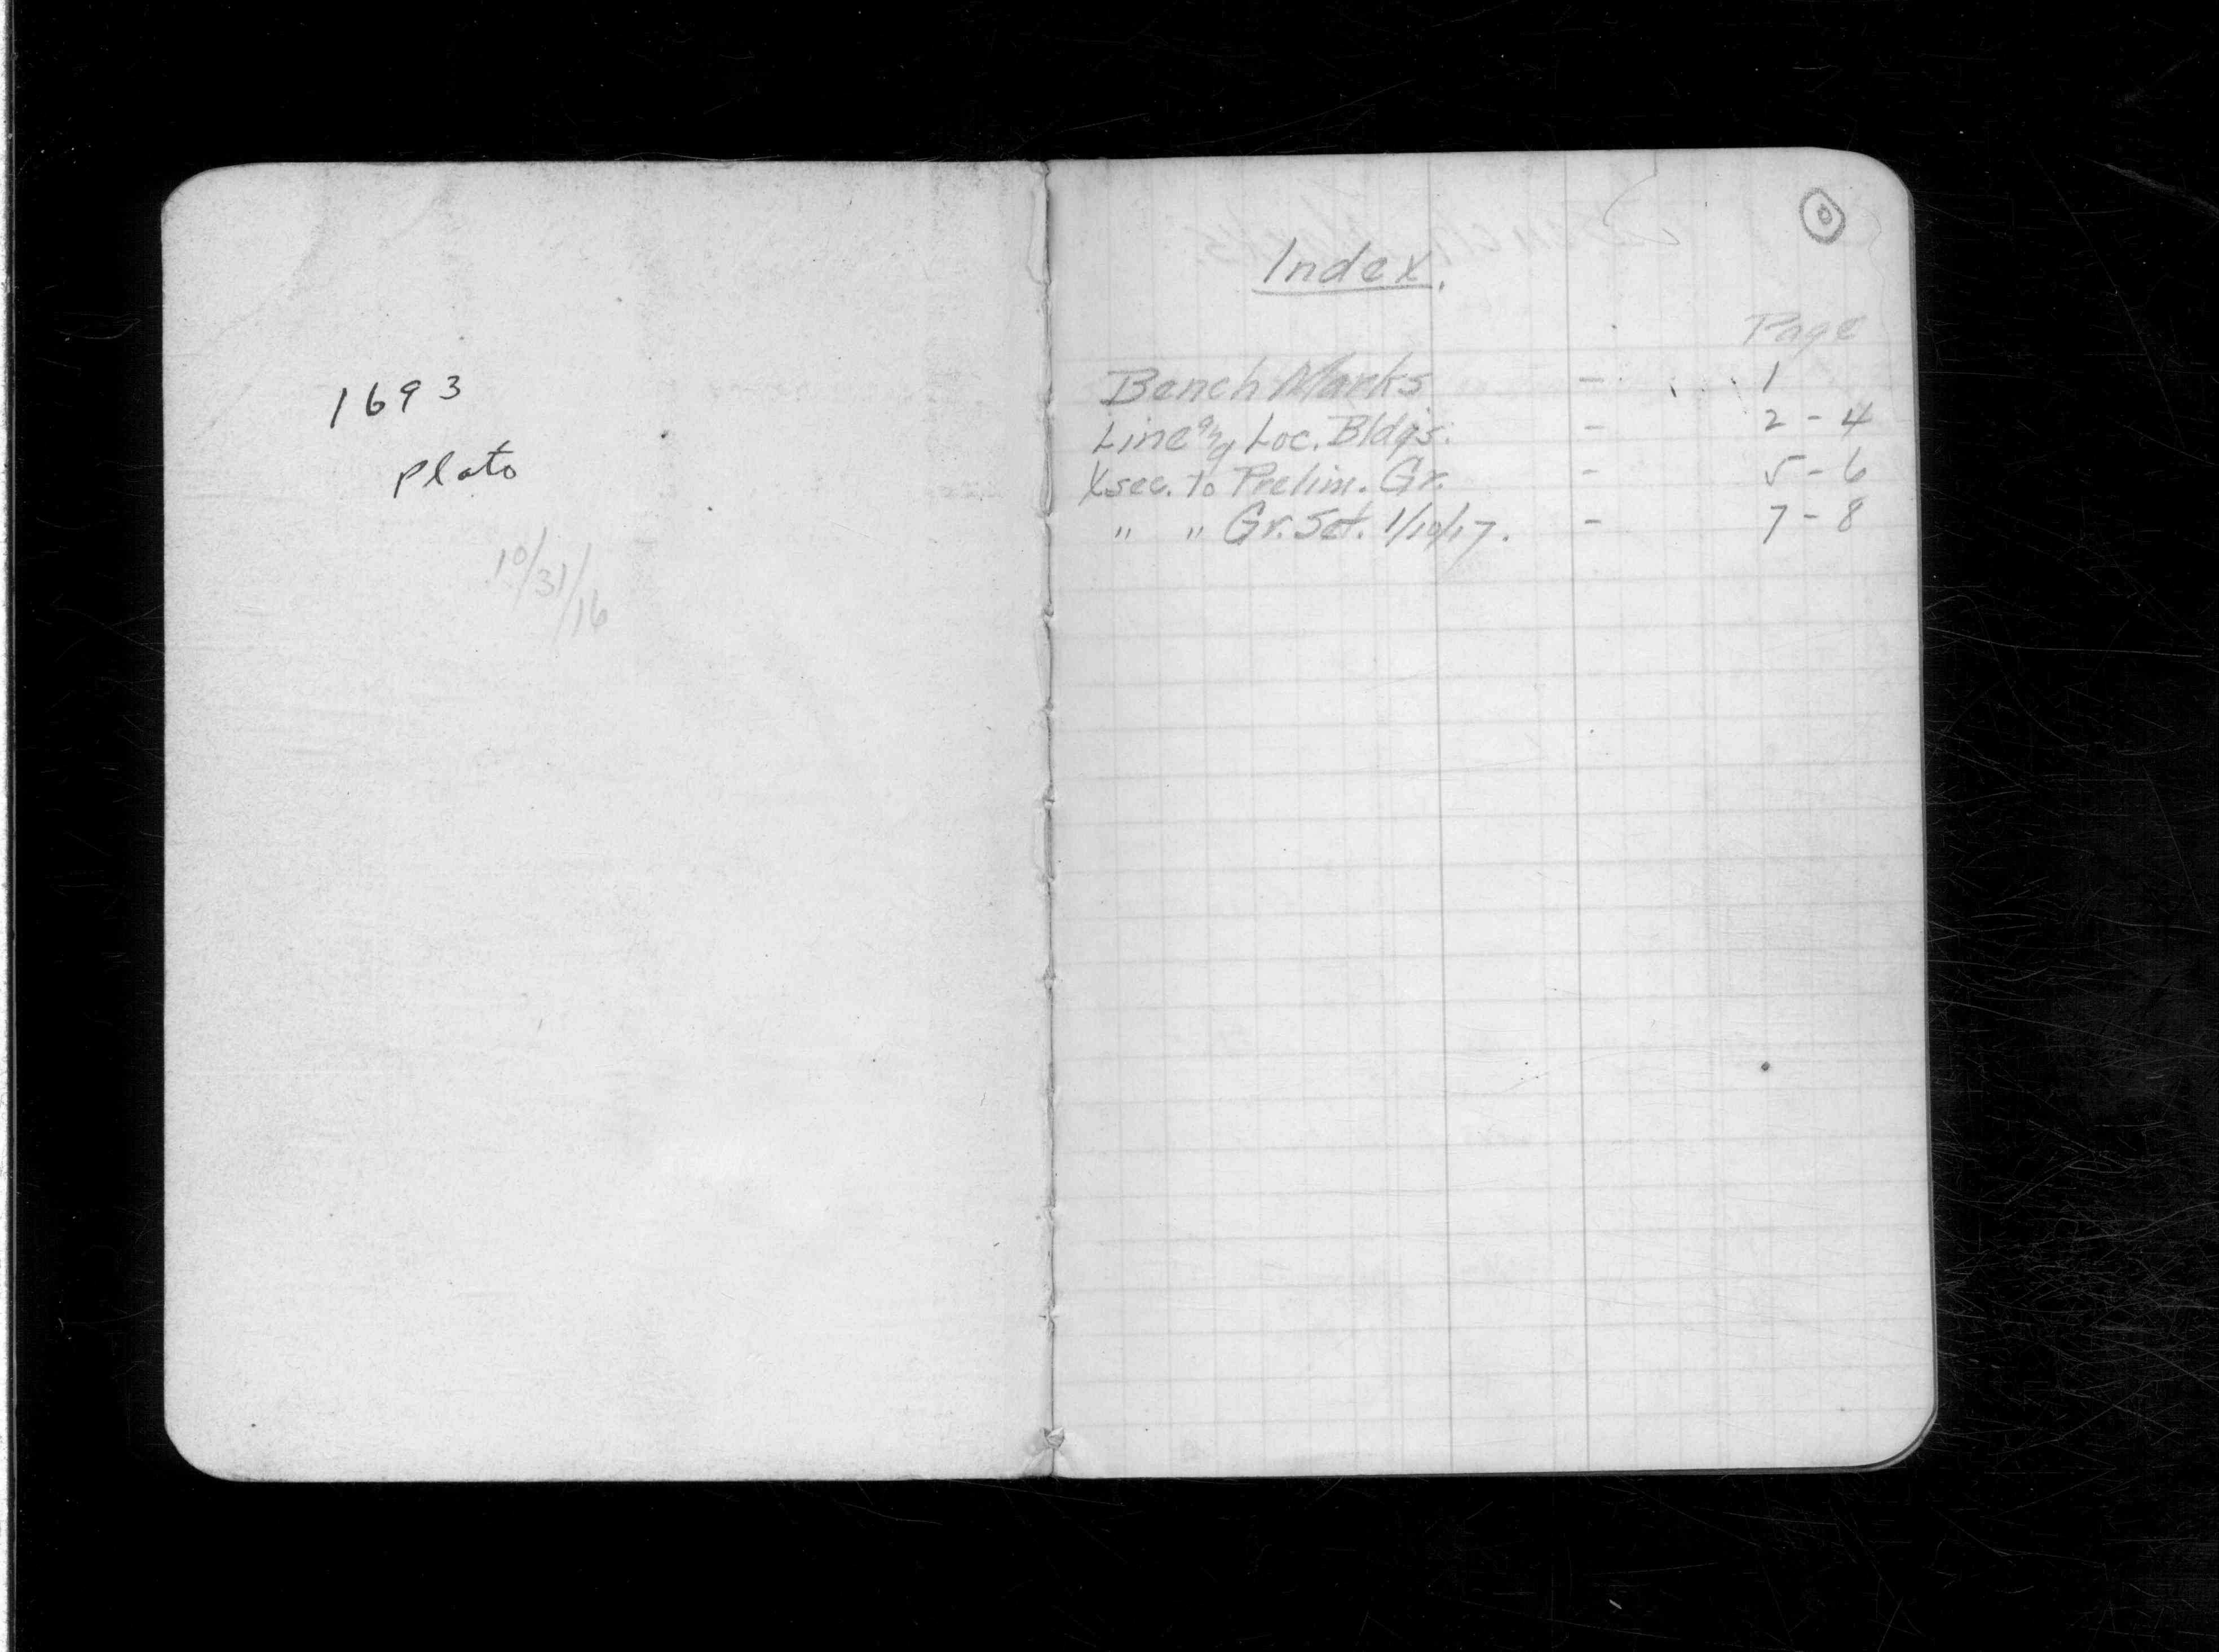 1693
Plato
10/31/16
0
Index.
Page
Bench Marks - 1
Line and Loc. Bldgs. - 2 - 4
Xsec. to Prelim. Gr. - 5 - 6
" " Gr. Set. 1/10/17. - 7 - 8